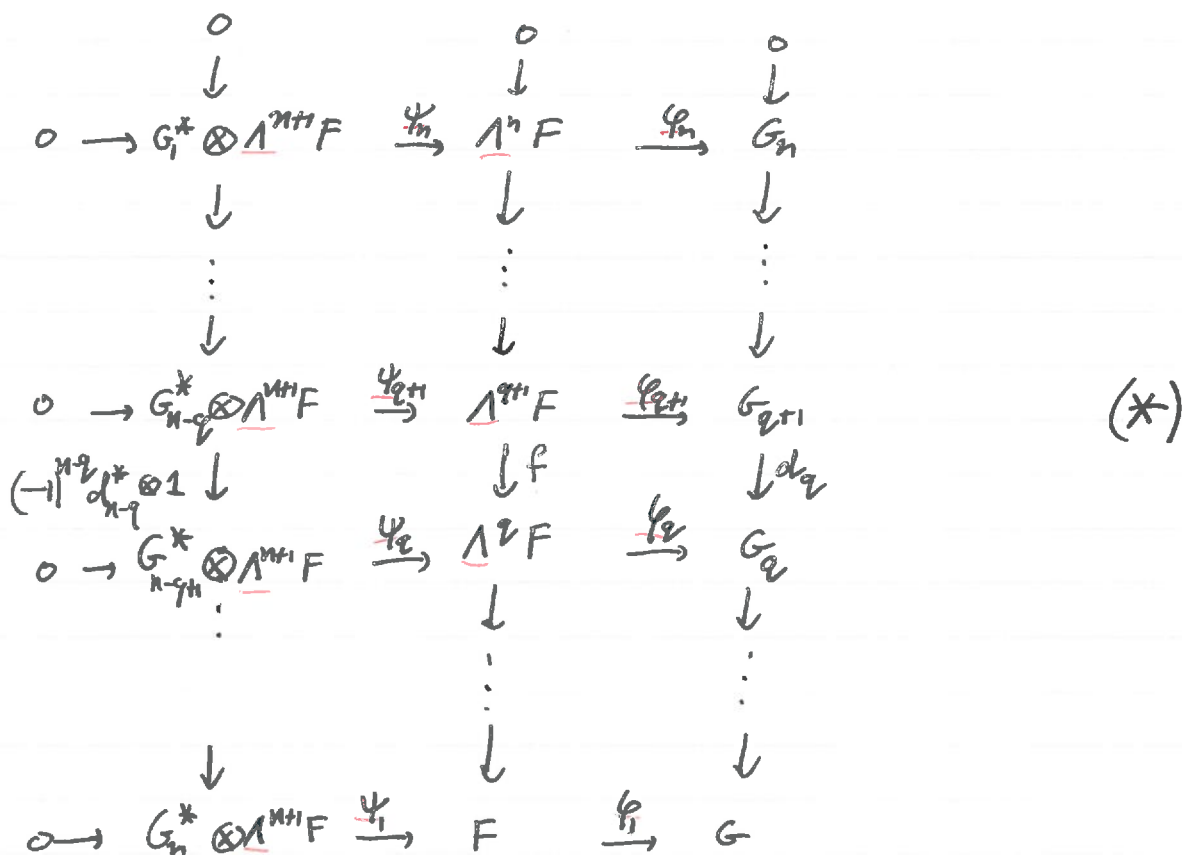 0 0 0
↓ ↓ ↓
0 → G₁* ⊗ Λⁿ⁺¹F —ψₙ→ ΛⁿF —φₙ→ Gₙ
↓ ↓ ↓
⋮ ⋮ ⋮
↓ ↓ ↓
0 → G*_{n-q} ⊗ Λⁿ⁺¹F —ψ_{q+1}→ Λ^{q+1}F —φ_{q+1}→ G_{q+1} (*)
(-1)^{n-q} d*_{n-q} ⊗ 1 ↓ ↓ f ↓ d_q
0 → G*_{n-q+1} ⊗ Λⁿ⁺¹F —ψ_q→ Λ^q F —φ_q→ G_q
⋮ ↓ ↓
⋮ ⋮
↓ ↓ ↓
0 → Gₙ* ⊗ Λⁿ⁺¹F —ψ₁→ F —φ₁→ G